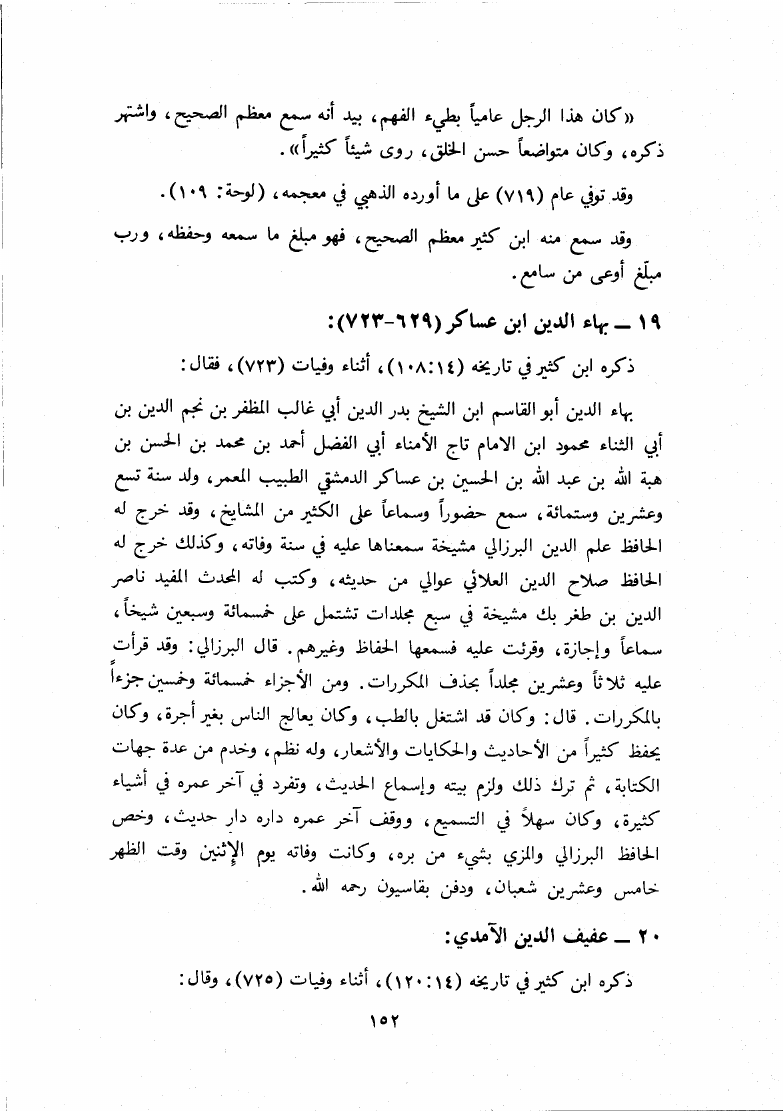 «كان هذا الرجل عامياً بطيء الفهم، بيد أنه سمع معظم الصحيح، واشتهر
ذكره، وكان متواضعاً حسن الخلق، روى شيئاً كثيراً».
وقد توفي عام (٧١٩) على ما أورده الذهبي في معجمه، (لوحة: ١٠٩).
وقد سمع منه ابن كثير معظم الصحيح، فهو مبلغ ما سمعه وحفظه، ورب
مبلّغ أوعى من سامع.
١٩ ــ بهاء الدين ابن عساكر (٦٢٩-٧٢٣):
ذكره ابن كثير في تاريخه (١٠٨:١٤)، أثناء وفيات (٧٢٣)، فقال:
بهاء الدين أبو القاسم ابن الشيخ بدر الدين أبي غالب المظفر بن نجم الدين بن
أبي الثناء محمود ابن الامام تاج الأمناء أبي الفضل أحمد بن محمد بن الحسن بن
هبة الله بن عبد الله بن الحسين بن عساكر الدمشقي الطبيب المعمر، ولد سنة تسع
وعشرين وستمائة، سمع حضوراً وسماعاً على الكثير من المشايخ، وقد خرج له
الحافظ علم الدين البرزالي مشيخة سمعناها عليه في سنة وفاته، وكذلك خرج له
الحافظ صلاح الدين العلائي عوالي من حديثه، وكتب له المحدث المفيد ناصر
الدين بن طغر بك مشيخة في سبع مجلدات تشتمل على خمسمائة وسبعين شيخاً،
سماعاً وإجازة، وقرئت عليه فسمعها الحفاظ وغيرهم. قال البرزالي: وقد قرأت
عليه ثلاثاً وعشرين مجلداً بحذف المكررات. ومن الأجزاء خمسمائة وخمسين جزءاً
بالمكررات. قال: وكان قد اشتغل بالطب، وكان يعالج الناس بغير أجرة، وكان
يحفظ كثيراً من الأحاديث والحكايات والأشعار، وله نظم، وخدم من عدة جهات
الكتابة، ثم ترك ذلك ولزم بيته وإسماع الحديث، وتفرد في آخر عمره في أشياء
كثيرة، وكان سهلاً في التسميع، ووقف آخر عمره داره دار حديث، وخص
الحافظ البرزالي والمزي بشيء من بره، وكانت وفاته يوم الإثنين وقت الظهر
خامس وعشرين شعبان، ودفن بقاسيون رحمه الله.
٢٠ ــ عفيف الدين الآمدي:
ذكره ابن كثير في تاريخه (١٢٠:١٤)، أثناء وفيات (٧٢٥)، وقال:
١٥٢